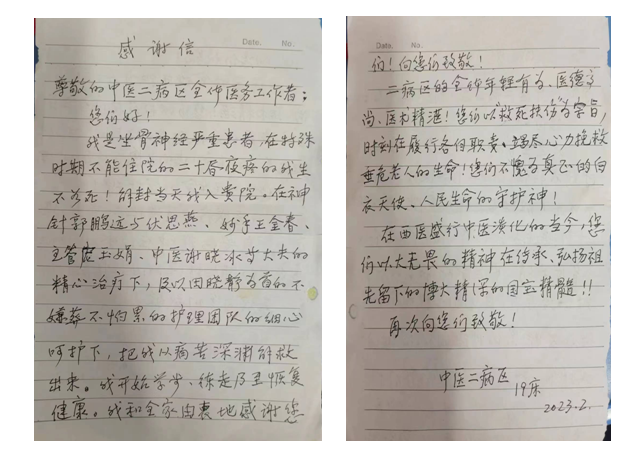 感谢信
Date. No.
尊敬的中医二病区全体医务工作者：
您们好！
我是坐骨神经严重患者，在特殊
时期不能住院的二十昼夜疼的我生
不若死！解封当天我入贵院。在神
针郭鹏远与伏思燕、妙手王金春、
主管庞玉娟、中医谢晓冰等大夫的
精心治疗下，及以因晓静为首的不
嫌葬不怕累的护理团队的细心
呵护下，把我从病苦深渊解救
出来。我开始学步、练走乃至恢复
健康。我和全家由衷地感谢您
Date. No.
们！向您们致敬！
二病区的全体年轻有为、医德高
尚、医术精湛！您们以“救死扶伤”为宗旨，
时刻在履行各自职责、竭尽心力挽救
垂危老人的生命！您们不愧为真正的白
衣天使、人民生命的守护神！
在西医盛行中医淡化的当今，您
们以大无畏的精神在传承、弘扬祖
先留下的博大精深的国宝精髓！！
再次向您们致敬！
中医二病区
19床
2023.2.